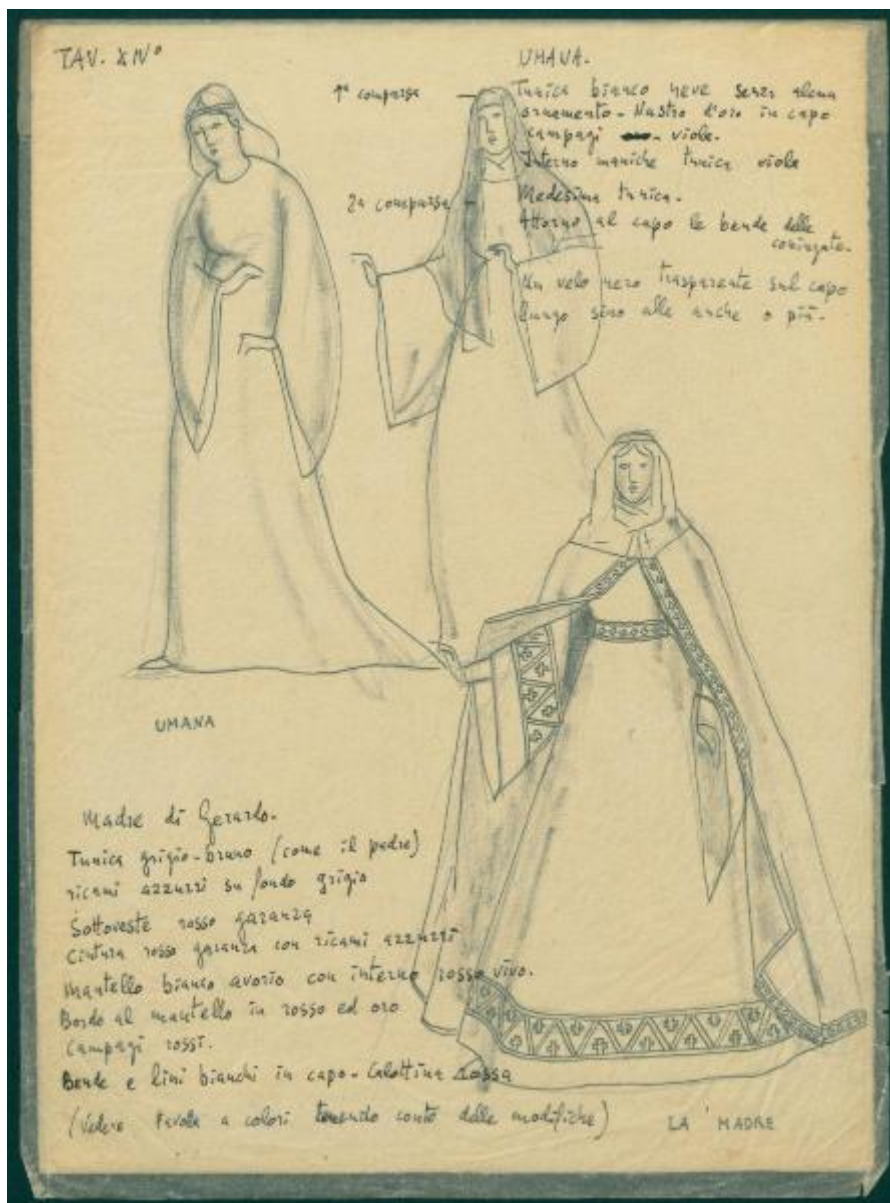 TAV. XIVº
UMANA.
1ª comparsa
Tunica bianco neve senza alcun
ornamento - Nastro d'oro in capo
campagi - viola.
Interno maniche tunica viola
2ª comparsa
Medesima tunica.
Attorno al capo le bende delle
coniugate.
Un velo nero trasparente sul capo
lungo sino alle anche o più.
UMANA
Madre di Gerardo.
Tunica grigio-bruno (come il padre)
ricami azzurri su fondo grigio
Sottoveste rosso garanza
Cintura rosso garanza con ricami azzurri
Mantello bianco avorio con interno rosso vivo.
Bordo al mantello in rosso ed oro
Campagi rossi.
Bende e lini bianchi in capo - Calottina rossa
(Vedere tavola a colori tenendo conto delle modifiche)
LA MADRE